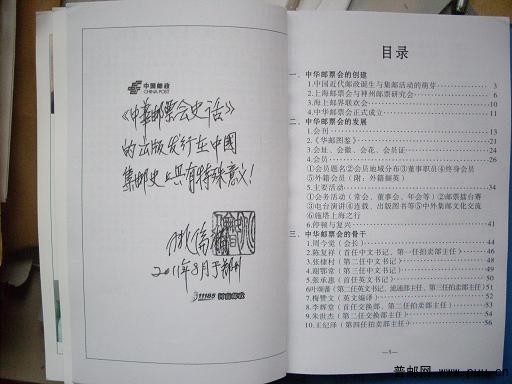 中国邮政
CHINA POST
《中华邮票会史话》
的出版发行在中国
集邮史上具有特殊意义！
2011年8月于郑州
11185
目录
一、中华邮票会的创建
1.中国近代邮政诞生与集邮活动的萌芽 3
2.上海邮票会与神州邮票研究会 6
3.海上邮界联欢会 10
4.中华邮票会正式成立 11
二、中华邮票会的发展
1.会刊 13
2.《华邮图鉴》 21
3.会址、会徽、会花、会员证 24
4.会员 26
①会员题名②会员地域分布③董事职员④终身会员
⑤外籍会员（附：外籍撷英）
5.主要活动 34
①会务活动（常会、董事会、年会等）②邮票擂台赛
③电台演讲④连载、出版图书等⑤中外集邮文化交流
⑥施塔上海之行
6.停顿与复兴 41
三、中华邮票会的骨干
1.周今觉（会长） 44
2.陈复祥（首任中文书记、第一任拍卖部主任） 46
3.张棣村（第二任中文书记） 48
4.谢鄂常（第三任中文书记） 49
5.张承惠（首任英文书记） 50
6.叶颂蕃（第二任英文书记、流通部主任、第三任拍卖部主任） 51
7.梅赞文（英文编译） 52
8.李辉堂（首任交换部、第二任拍卖部主任） 53
9.朱世杰（第二任交换部主任） 54
10.王纪泽（第四任拍卖部主任） 56
—1—
普邮网 www.puyu.cn